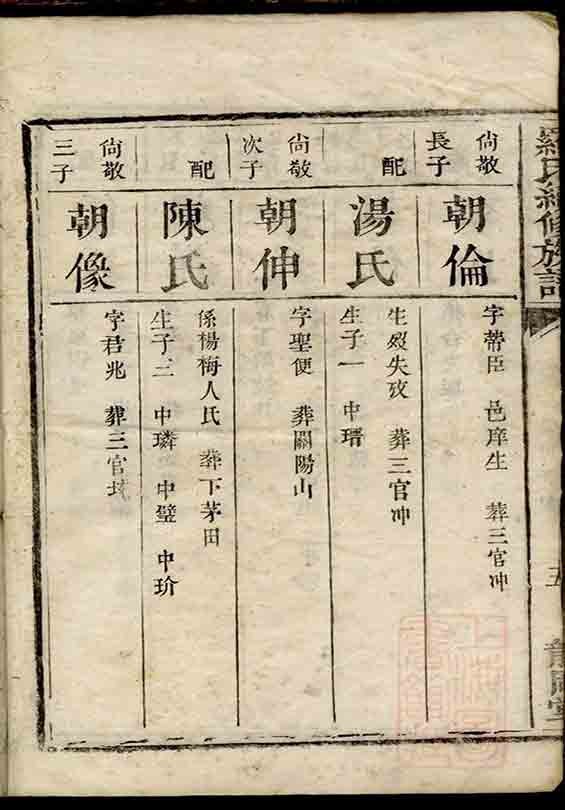 羅氏續修族譜
五
尙敬
長子
朝倫
字蒂臣 邑庠生 葬三官冲
配
湯氏
生歿失攷 葬三官冲
生子一 中瑨
尙敬
次子
朝伸
字聖便 葬關陽山
配
陳氏
係楊梅人氏 葬下茅田
生子三 中璘 中璧 中玠
尙敬
三子
朝像
字君兆 葬三官𡋾